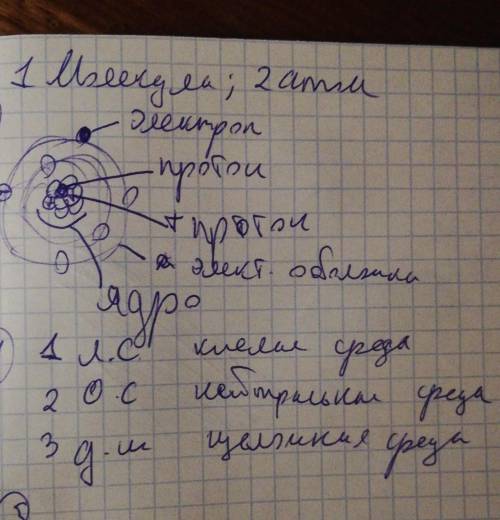 1 Молекула; 2 атом
электрон
протон
+ протон
элект. оболочка
ядро
1 л.С кислая среда
2 О.С нейтральная среда
3 д.ш щелочная среда